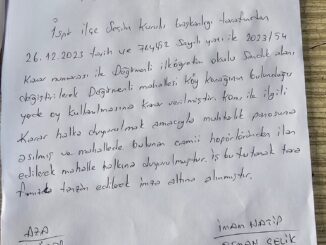 İspir ilçe Seçim Kurulu başkanlığı tarafından
26.12.2023 tarih ve sayılı yazı ile 2023/54
Karar numarası ile Değirmenli ilköğretim okulu Sandık alanı
değiştirilerek Değirmenli mahallesi Köy Konağının bulunduğu
yerde oy kullanılmasına karar verilmiştir. Konu ile ilgili
Karar halka duyurulmak amacıyla muhtarlık panosuna
asılmış ve mahallede bulunan camii hoparlöründen ilan
edilerek mahalle halkına duyurulmuştur. iş bu tutanak tara
fımızdan tanzim edilerek imza altına alınmıştır.
AZA İMAM HATİP
ÇELİK